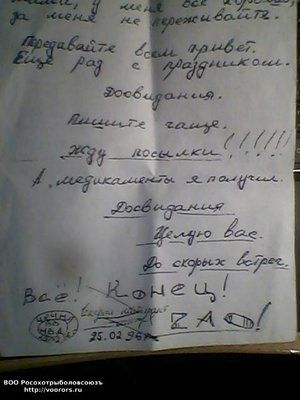 у меня все хорошо,
за меня не переживайте.
Передавайте всем привет.
Еще раз с праздником.
Досвидания.
Пишите чаще.
Жду посылки!!!!!!
А, медикаменты я получил.
Досвидания
Целую вас.
До скорых встреч.
Всё! Конец!
ЧЕЧНЯ
25.02.96г.
ВОО Росохотрыболовсоюзъ
http://voorors.ru